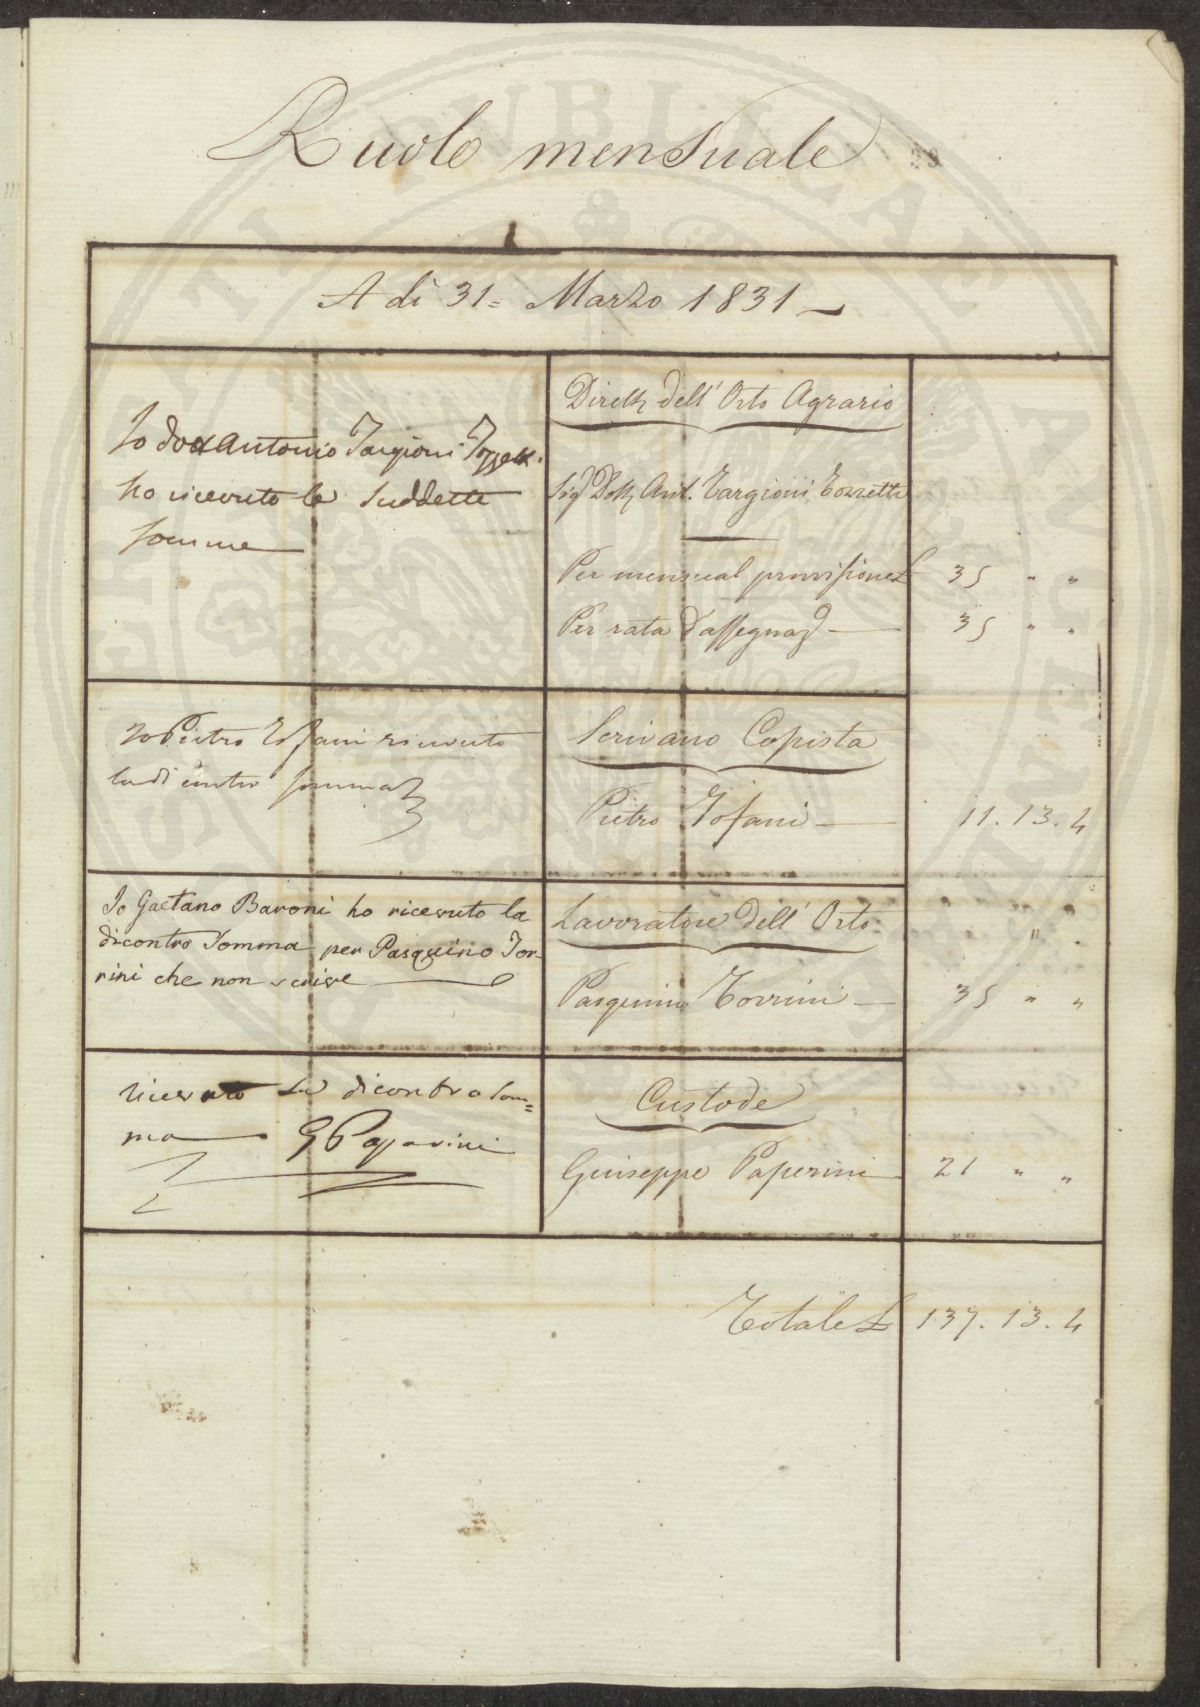 Ruolo mensuale
A dì 31= Marzo 1831
Io Antonio Targioni Tozzetti
ho ricevuto le suddette
somme
Dirett. dell' Orto Agrario
Sig. Dott. Ant. Targioni Tozzetti
Per mensual provisione £ 35 " "
Per rata d'assegnaz. 35 " "
Io Pietro Tofani ricevuto
la di contro somma
Scrivano Copista
Pietro Tofani 11. 13. 4
Io Gaetano Baroni ho ricevuto la
dicontro Somma per Pasquino Tor-
rini che non scrive
Lavoratore dell' Orto
Pasquino Torrini 35 " "
ricevuto La dicontro som=
ma G Paperini
Custode
Giuseppe Paperini 21 " "
Totale £ 137. 13. 4